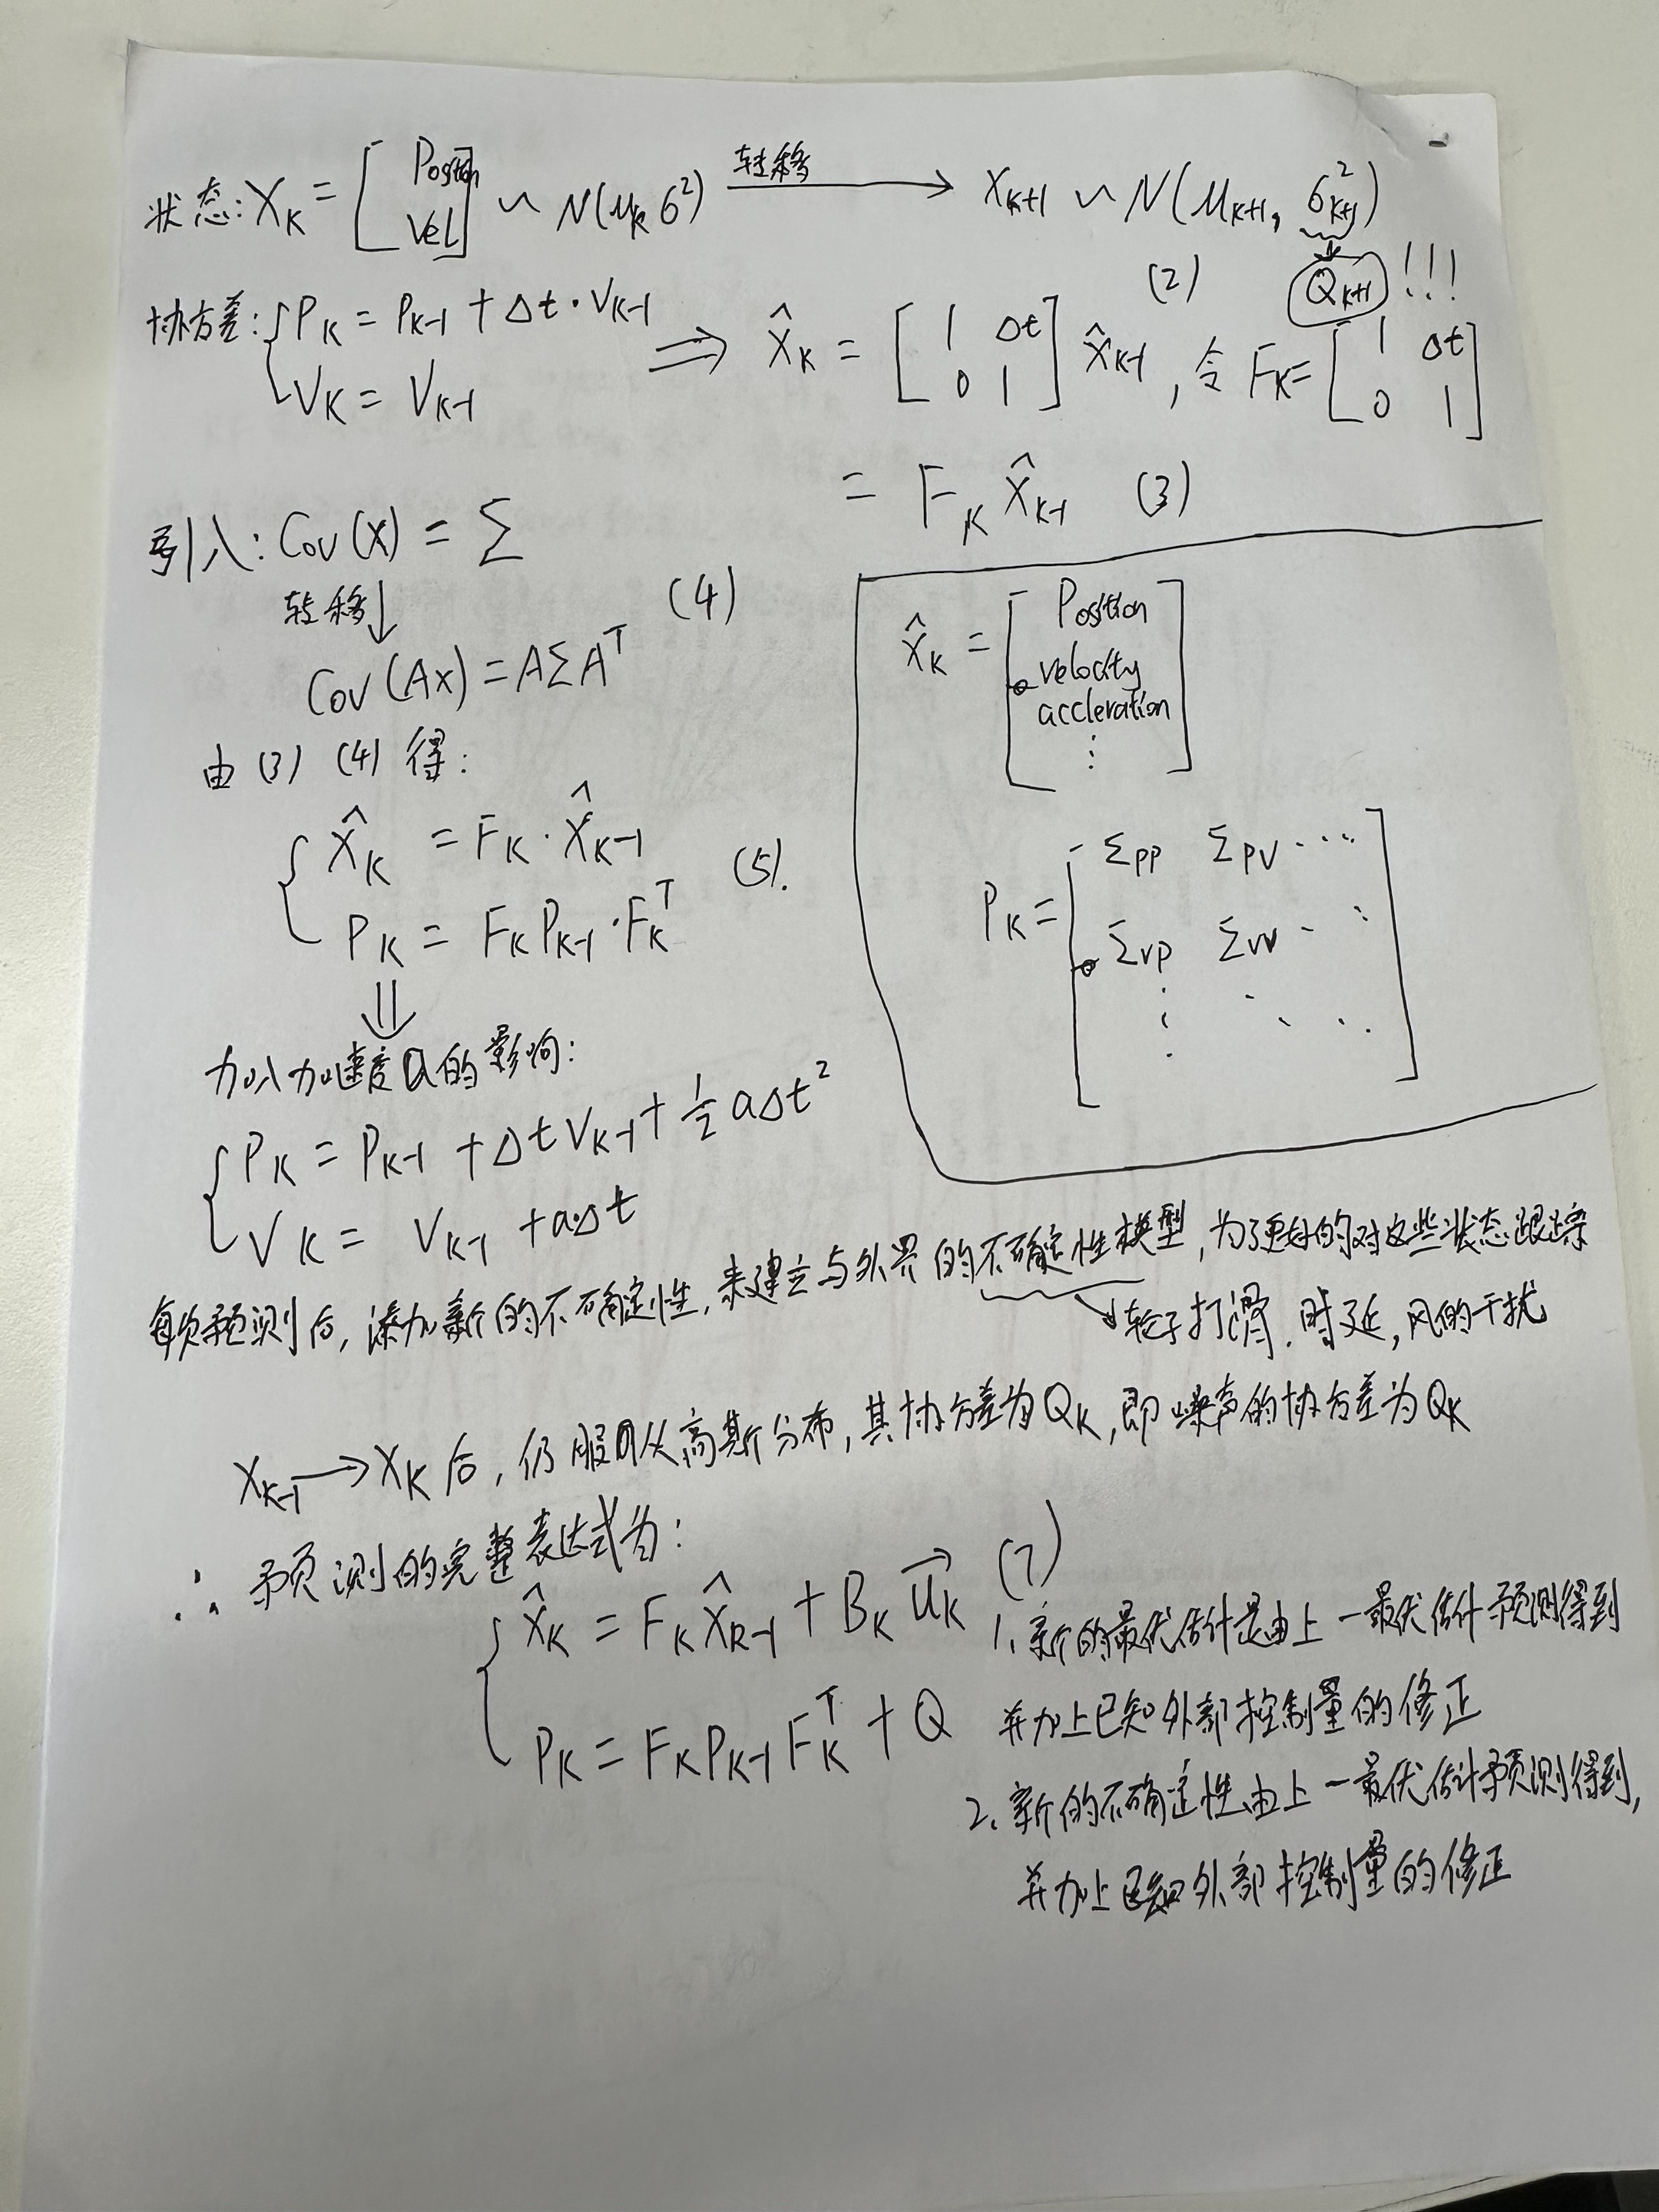 状态: X_K = [Positon Vel] ~ N(μ_K 6²) 转移 → X_{K+1} ~ N(μ_{K+1}, 6²_{K+1})
(2) Q_{K+1} !!!
协方差: { P_K = P_{K-1} + Δt·V_{K-1}
V_K = V_{K-1}
⇒ X̂_K = [1 Δt; 0 1] X̂_{K-1}, 令 F_K = [1 Δt; 0 1]
= F_K X̂_{K-1} (3)
引入: Cov(X) = Σ
转移↓ (4)
Cov(Ax) = AΣA^T
由 (3) (4) 得:
{ X̂_K = F_K · X̂_{K-1}
P_K = F_K P_{K-1} · F_K^T (5).
⇓
X̂_K = [Position
velocity
accleration
⋮]
P_K = [Σpp Σpv ···
Σvp Σvv ··
⋮ ⋱ ···]
加入加速度a的影响:
{ P_K = P_{K-1} + Δt V_{K-1} + ½ aΔt²
V_K = V_{K-1} + a·Δt
每次预测后, 添加新的不确定性, 来建立与外界的不确定性模型, 为了更好的对这些状态跟踪
↘ 轮子打滑. 时延, 风的干扰
X_{K-1} → X_K 后, 仍服从高斯分布, 其协方差为Q_K, 即噪声的协方差为Q_K
∴ 预测的完整表达式为:
{ X̂_K = F_K X̂_{K-1} + B_K u⃗_K (7)
P_K = F_K P_{K-1} F_K^T + Q
1. 新的最优估计是由上一最优估计预测得到
并加上已知外部控制量的修正
2. 新的不确定性由上一最优估计预测得到,
并加上已知外部控制量的修正